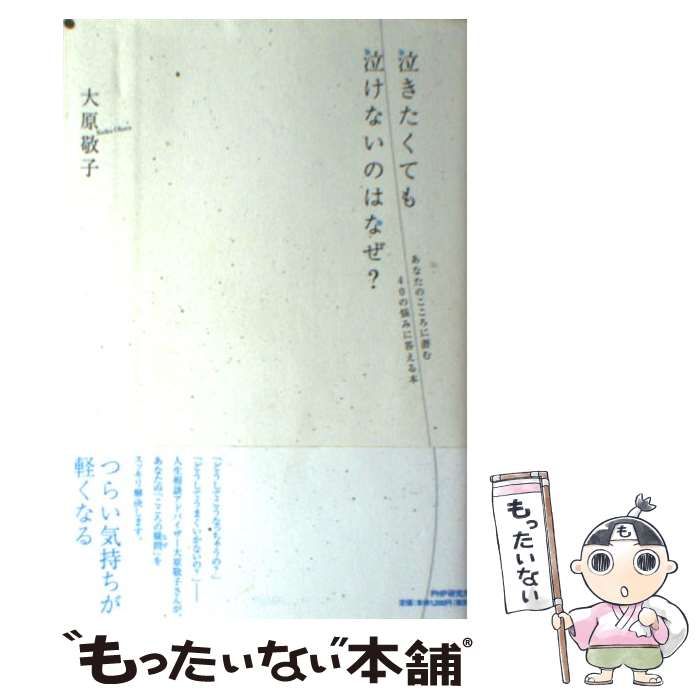 泣きたくても
泣けないのはなぜ?
あなたのこころに潜む
40の悩みに答える本
大原敬子
Keiko Ohara
「どうしてこうなっちゃうの?」
「どうしてうまくいかないの?」──
人生相談アドバイザー大原敬子さんが、
あなたの「こころの疑問」を
スッキリ解決します。
つらい気持ちが
軽くなる
PHP研究所
も
もったいない
“もったいない本舗®